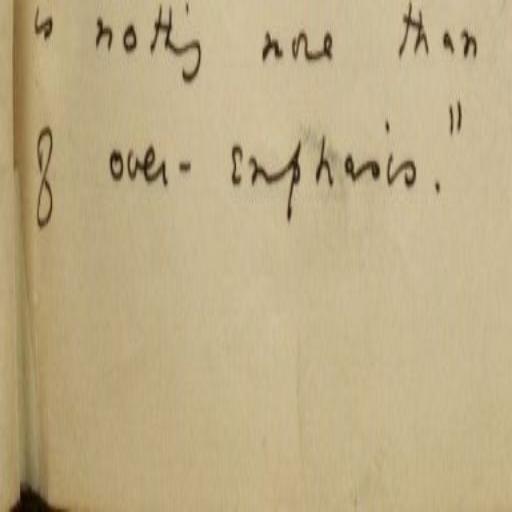 is nothing more than
of over-emphasis."